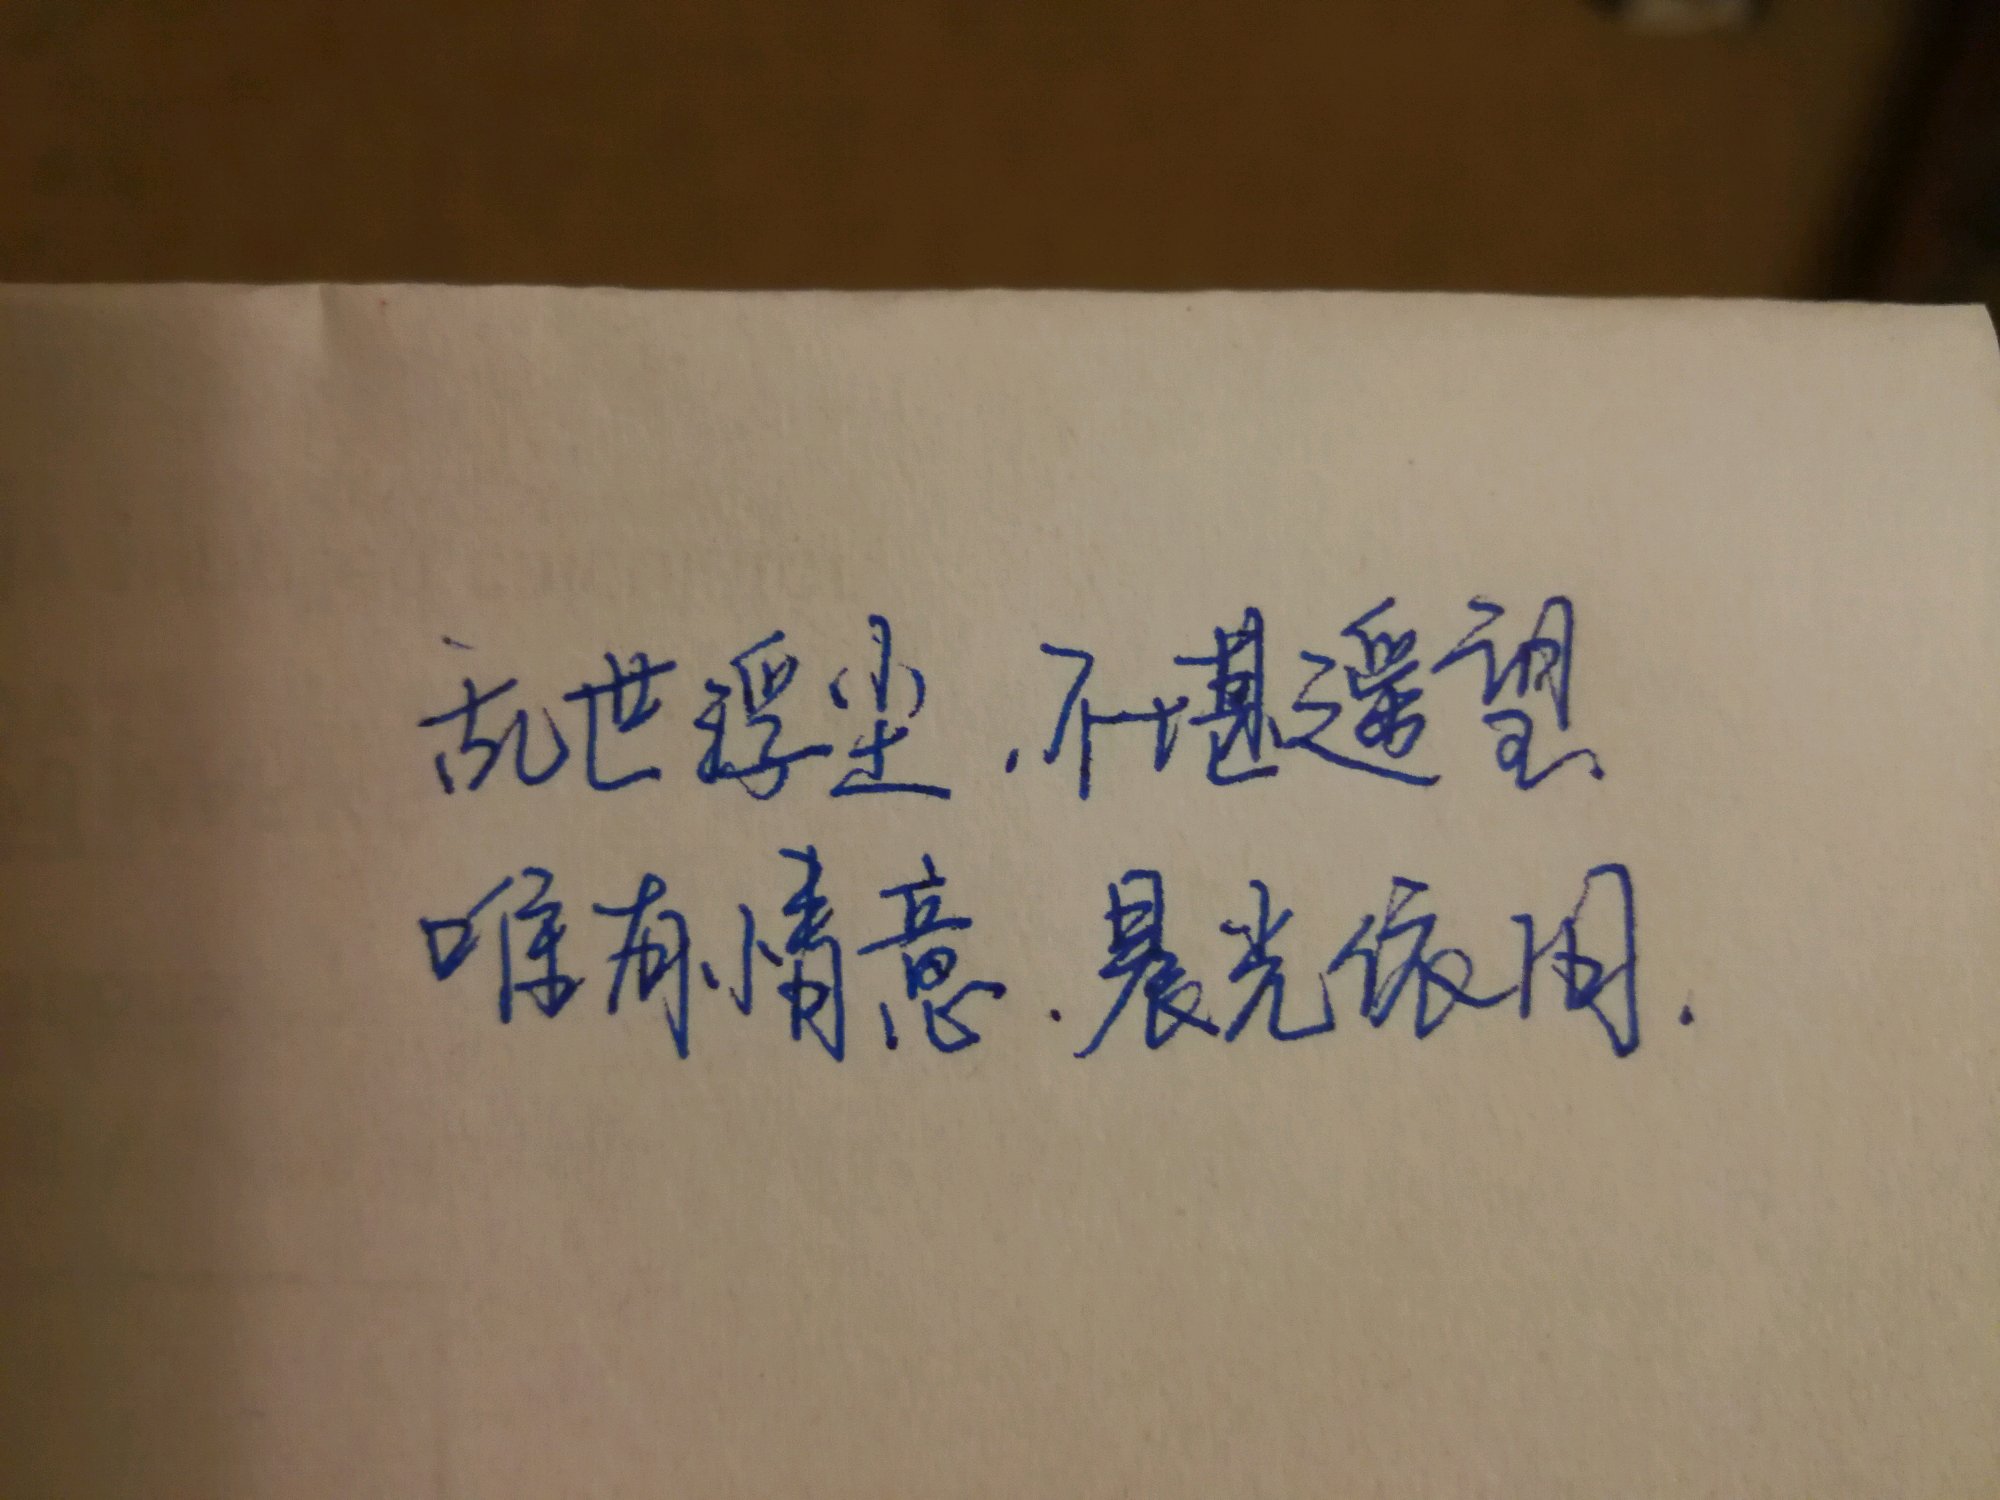 乱世浮尘.不堪遥望
唯有情意.晨光依旧.